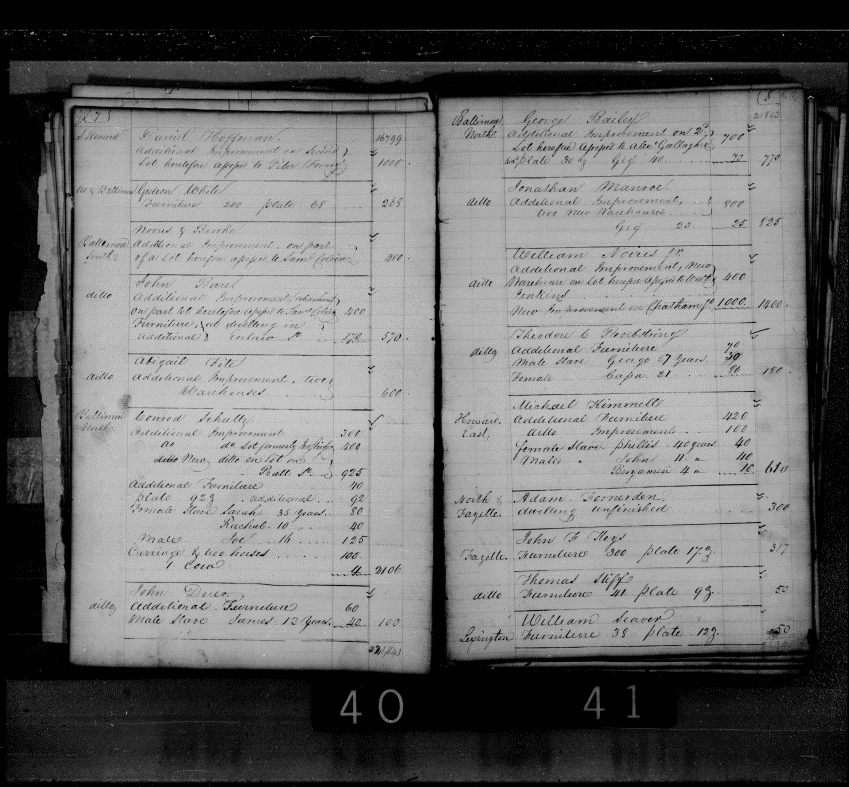 S. Howard Daniel Hoffman 16799
Additional Improvement on
Lot heretofore appsd to Peter 1000
Gideon White
Furniture 200 plate 68 268
Norris & Brooke
Baltimore Additional Improvement on part
South of a Lot heretofore appsd to Saml 400
ditto John
Additional Improvement
on part lot heretofore appsd to 400
Furniture, at dwelling in
additional 170 570
Abigail
ditto Additional Improvement, two
Warehouses 600
Baltimore Conrod Schultz
North
Additional Improvement 300
do do Lot formerly 400
ditto New ditto on Lot on
Pratt St 925
Additional Furniture 40
plate 92 additional 92
Female Slave Sarah 35 Years 80
Rachal 10 40
Male Joe 16 125
Carriage & two horses 100
1 Cow 4 2106
John
ditto Additional Furniture 60
Male Slave James 12 Years 40 100
21843
21843
Baltimore George Bailey
North Additional Improvement on
Lot heretofore Appsd to Alexr Gallagher 700
plate 30 Gig 40 70 770
Jonathan Manroe
ditto Additional Improvement, 800
two New Warehouses
Gig 25 25 825
William Norris jr
Additional Improvement, New
ditto Warehouse on Lot heretofore Appsd to 400
Jenkins
New Improvement on Chatham St 1000 1400
Theodore C
ditto Additional Furniture 70
Male Slave George 67 Years 30
Female Capa 21 80 180
Michael Kimmell
Howard Additional Furniture 420
East ditto Improvements 100
Female Slave phillis 40 years 40
Males " John 11 " 40
Benjamin 4 " 10 610
North & Adam Fonerden
Fayette dwelling unfinished 300
John F Keys
Fayette Furniture 300 plate 17 317
Thomas Stiff
ditto Furniture 41 plate 9 50
William Seaver
Lexington Furniture 38 plate 12 50
40 41